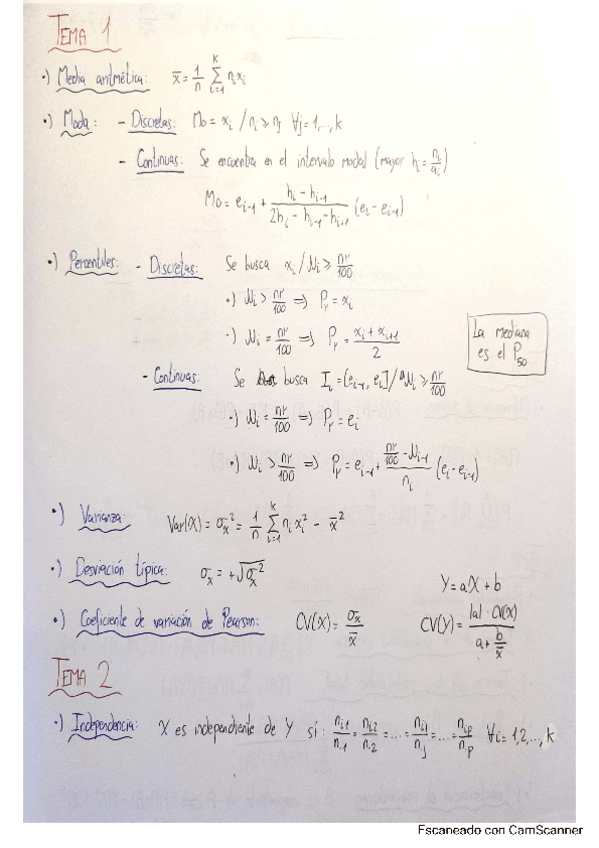 TEMA 1
·) Media aritmética: x̄ = 1/n Σ_{i=1}^{k} n_i x_i
·) Moda: - Discretas: Mo = x_i / n_i ≥ n_j ∀j = 1,..., k
- Continuas: Se encuentra en el intervalo modal (mayor h_i = n_i/a_i)
Mo = e_{i-1} + (h_i - h_{i-1})/(2h_i - h_{i-1} - h_{i+1}) (e_i - e_{i-1})
·) Percentiles: - Discretas: Se busca x_i / N_i ≥ nr/100
·) N_i > nr/100 ⇒ P_r = x_i
·) N_i = nr/100 ⇒ P_r = (x_i + x_{i+1})/2
La mediana
es el P_50
- Continuas: Se busca I_i = (e_{i-1}, e_i] / N_i ≥ nr/100
·) N_i = nr/100 ⇒ P_r = e_i
·) N_i > nr/100 ⇒ P_r = e_{i-1} + (nr/100 - N_{i-1})/n_i (e_i - e_{i-1})
·) Varianza Var(X) = σ_x² = 1/n Σ_{i=1}^{k} n_i x_i² - x̄²
·) Desviación típica: σ_x = +√σ_x²
Y = aX + b
·) Coeficiente de variación de Pearson: CV(X) = σ_x/x̄ CV(Y) = (|a| · CV(X))/(a + b/x̄)
TEMA 2
·) Independencia: X es independiente de Y sí: n_{i1}/n_{·1} = n_{i2}/n_{·2} = ... = n_{ij}/n_{·j} = ... = n_{ip}/n_{·p} ∀i = 1,2,..., k
Escaneado con CamScanner